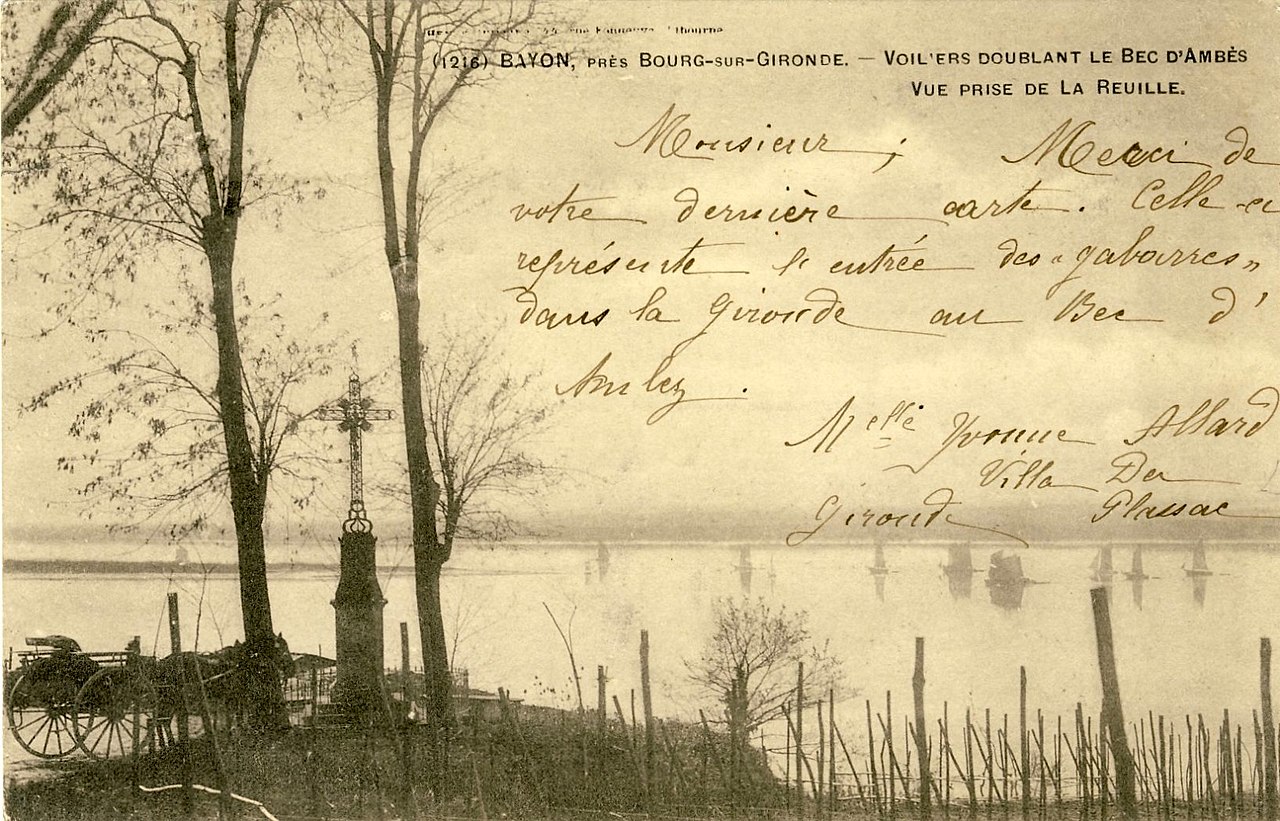 Libourne
(1216) BAYON, PRÈS BOURG-SUR-GIRONDE. — VOIL'ERS DOUBLANT LE BEC D'AMBÈS
VUE PRISE DE LA REUILLE.
Monsieur, Merci de
votre dernière carte. Celle-ci
représente l'entrée des "gabarres"
dans la Gironde au Bec d'
Ambez.
Melle Yvonne Allard
Villa
Gironde Plassac